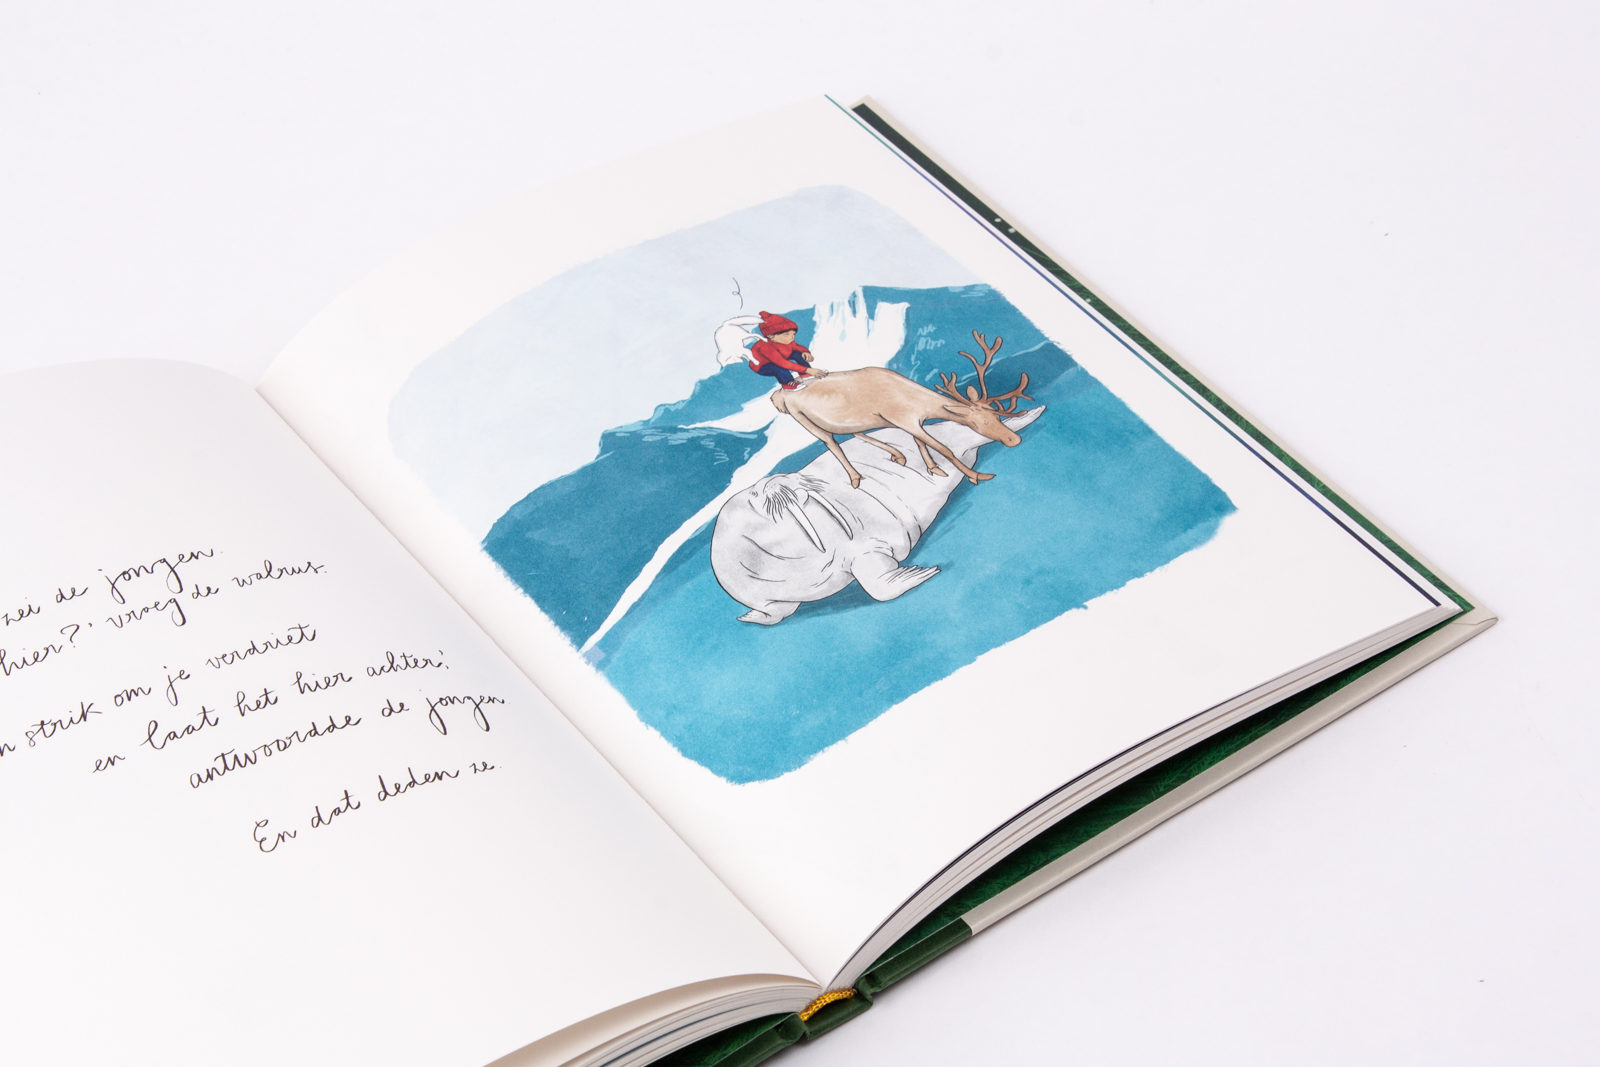 zei de jongen.
hier?' vroeg de walrus.
n strik om je verdriet
en laat het hier achter,'
antwoordde de jongen.
En dat deden ze.